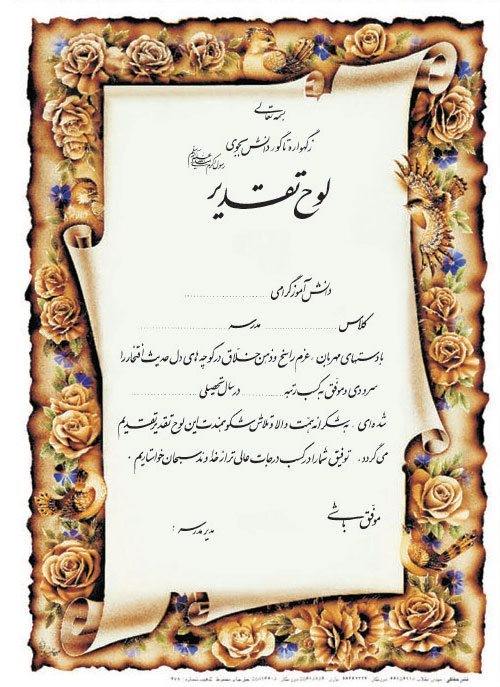 بسمه تعالی
زگهواره تا گور دانش بجوی
رسول اکرم
لوح تقدیر
دانش آموز گرامی ....................
کلاس .................... مدرسه ....................
با دستهای مهربان ، عزم راسخ و ذهن خلاق در کوچه های دل حدیث افتخار را
سرودی و موفق به کسب رتبه .................... در سال تحصیلی ....................
شده ای . به شکرانه همت والا و تلاش شکوهمندت این لوح تقدیر تقدیم
می گردد . توفیق شما را در کسب درجات عالی تر از خداوند سبحان خواستاریم .
موفق باشی
مدیر مدرسه :